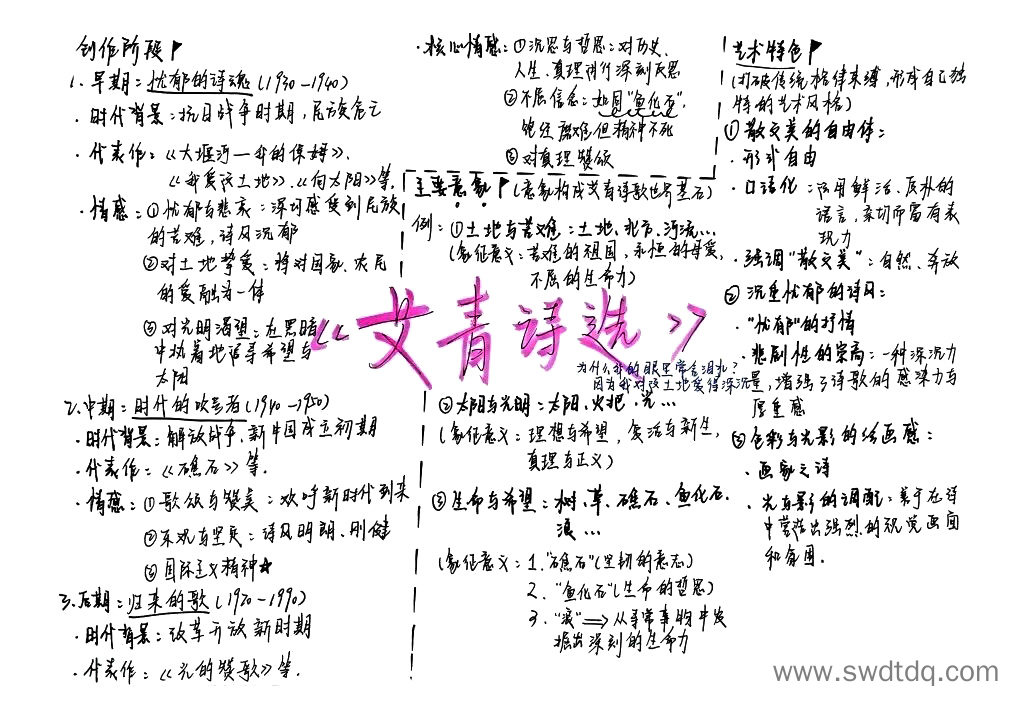 创作阶段
1.早期：忧郁的诗魂(1930-1940)
·时代背景：抗日战争时期，民族危亡
·代表作：《大堰河—我的保姆》、
《我爱这土地》、《向太阳》等.
·情感：①忧郁与悲哀：深切感受到民族
的苦难，诗风沉郁
②对土地挚爱：将对国家、农民
的爱融为一体
③对光明渴望：在黑暗
中执着地追寻希望与
太阳
2.中期：时代的吹号者(1940-1950)
·时代背景：解放战争、新中国成立初期
·代表作：《礁石》等.
·情感：①歌颂与赞美：欢呼新时代到来
②乐观与坚定：诗风明朗、刚健
③国际主义精神★
3.后期：归来的歌(1970-1990)
·时代背景：改革开放新时期
·代表作：《光的赞歌》等.
·核心情感：①沉思与哲思：对历史、
人生、真理进行深刻反思
②不屈信念：如同"鱼化石",
饱经磨难但精神不死
③对真理赞颂
主要意象(意象构成艾青诗歌世界基石)
例：①土地与苦难：土地、北方、河流…
(象征意义：苦难的祖国，永恒的母爱，
不屈的生命力)
《艾青诗选》
为什么我的眼里常含泪水？
因为我对这土地爱得深沉
②太阳与光明：太阳、火把、光…
(象征意义：理想与希望，复活与新生，
真理与正义)
③生命与希望：树、草、礁石、鱼化石、
浪…
(象征意义：1."礁石"(坚韧的意志)
2."鱼化石"(生命的哲思)
3."浪"⇒从寻常事物中发
掘出深刻的生命力
艺术特色
(打破传统格律束缚，形成自己独
特的艺术风格)
①散文美的自由体：
·形式自由
·口语化：运用鲜活、质朴的
语言，亲切而富有表
现力
·强调"散文美"：自然、奔放
②沉重忧郁的诗风：
·"忧郁"的抒情
·悲剧性的崇高：一种深沉力
量，增强了诗歌的感染力与
厚重感
③色彩与光影的绘画感：
·画家之诗
·光与影的调配：善于在诗
中营造出强烈的视觉画面
和氛围.
www.swdtdq.com